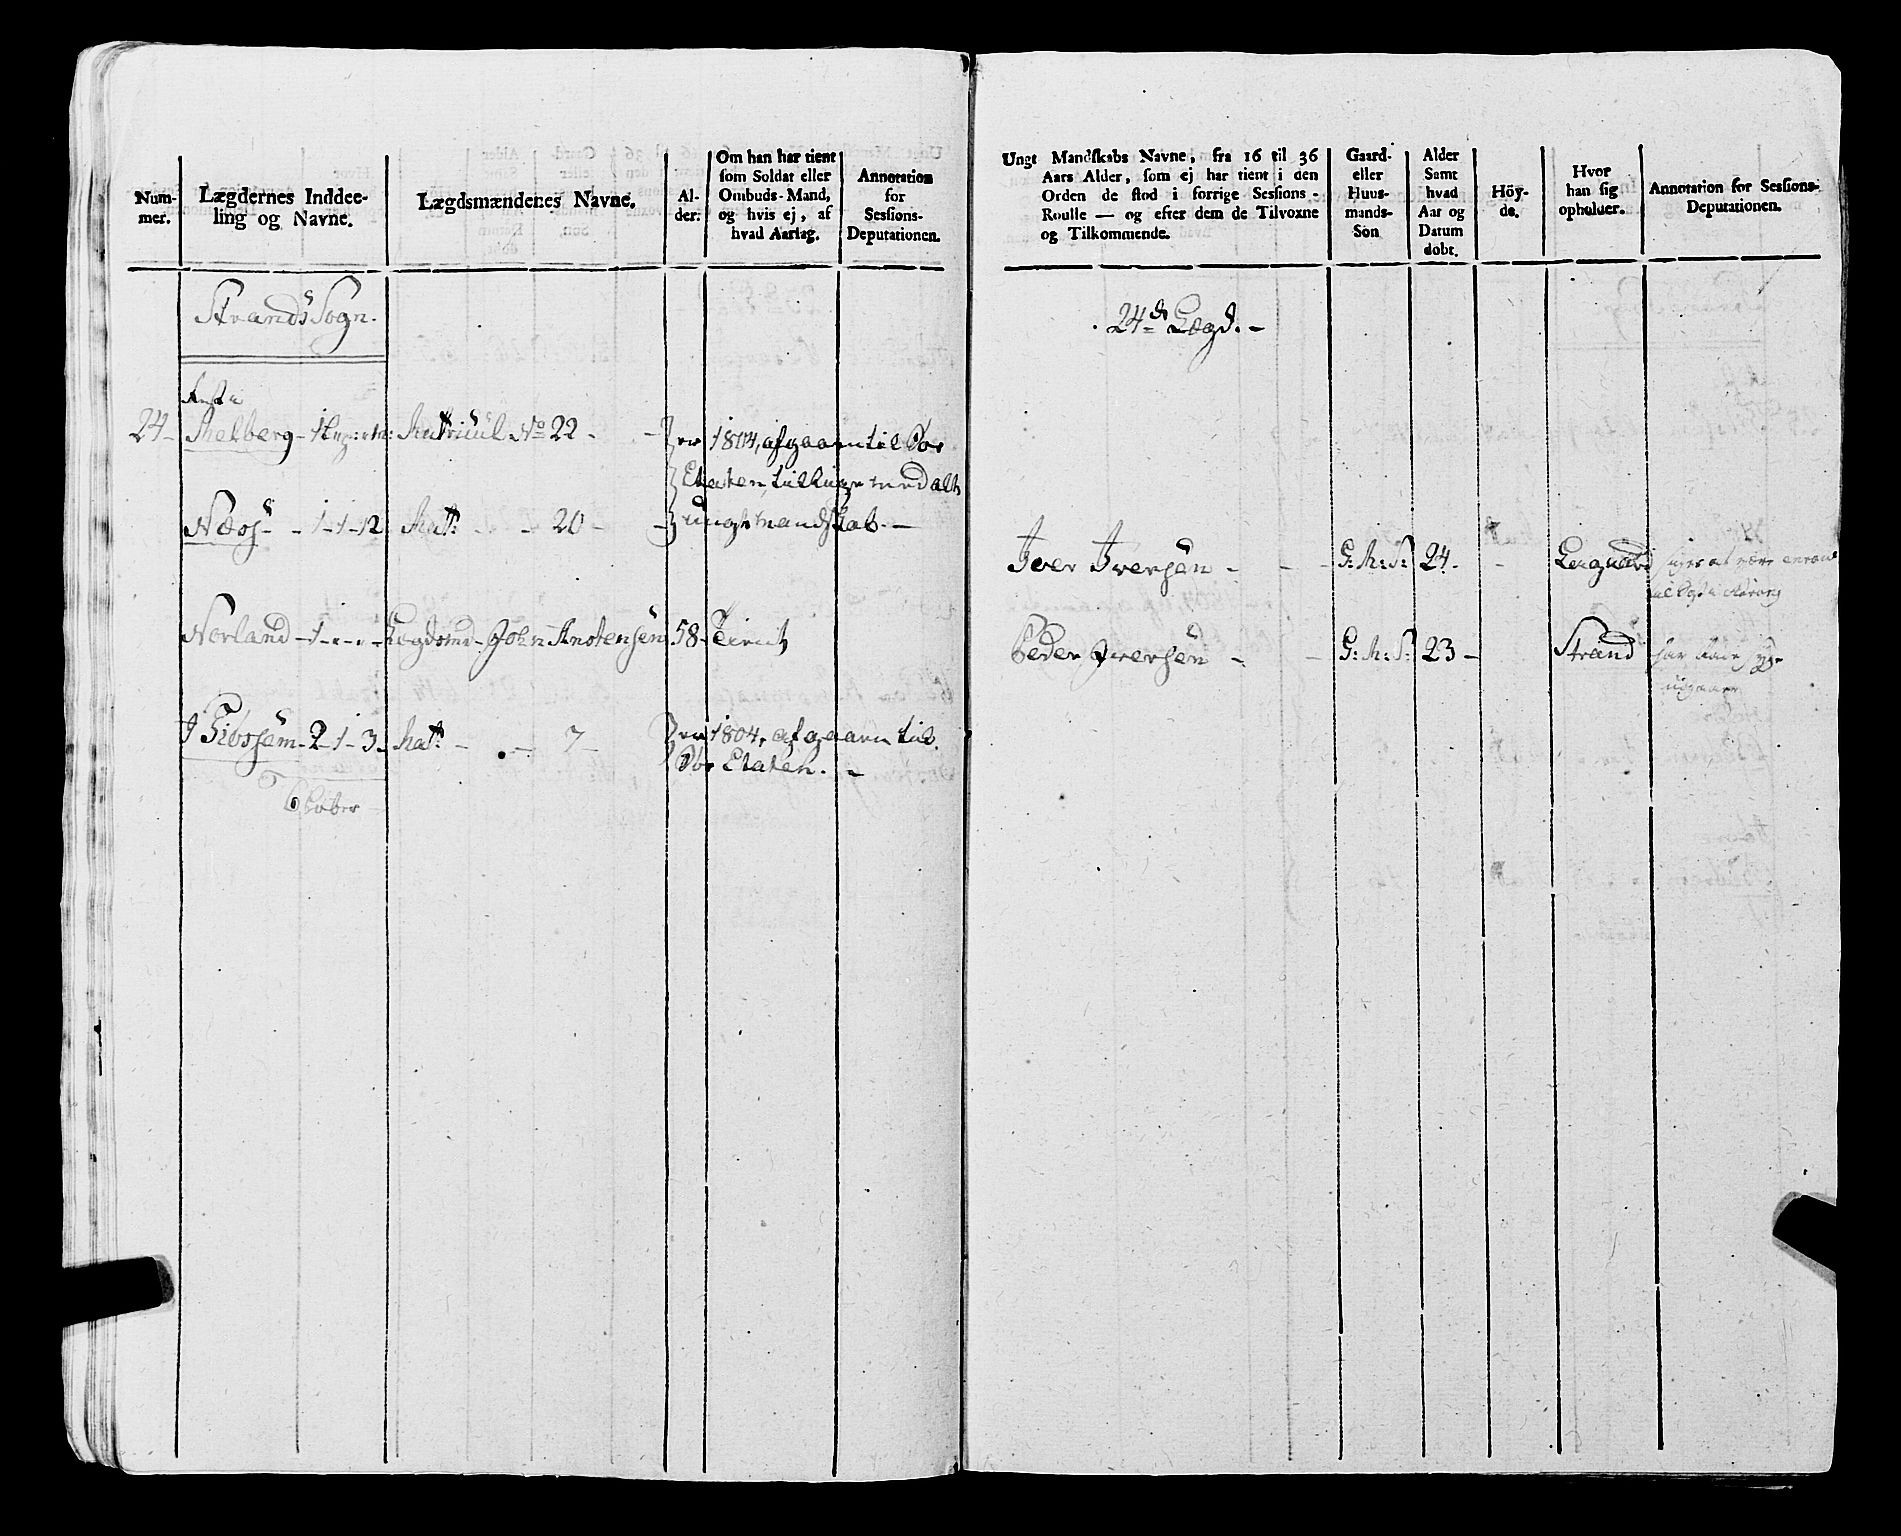 Num-
mer.
Lægdernes Inddee-
ling og Navne.
Lægdsmændenes Navne.
Al-
der.
Om han har tient
som Soldat eller
Ombuds-Mand,
og hvis ej, af
hvad Aarsag.
Annotation
for
Sessions-
Deputationen.
Strands Sogn.
24 Melberg - 1 No 22 - er 1804, afgaaen til Søe
Etaten, tillige med alt
Næss - 1 - 1 - 12 Matr: - 20 - ungt mandskab. -
Norland - 1 - Lægdsmd - John Anstensen 58 - Tient
Tiøssem - 2 - 1 - 3 - Matr: - 7 - er 1804, afgaaen til
Søe Etaten. -
Ungt Mandskabs Navne, fra 16 til 36
Aars Alder, som ej har tient i den
Orden de stod i forrige Sessions-
Roulle — og efter dem de Tilvoxne
og Tilkommende.
Gaard-
eller
Huus-
mands-
Son
Alder
Samt
hvad
Aar og
Datum
døbt.
Höy-
de.
Hvor
han sig
opholder.
Annotation for Sessions-
Deputationen.
24de Lægd. -
Iver Iversen - G: M: S: 24 - siges at være
Peder Iversen - G: M: S: 23 - Strand har
udgaaer